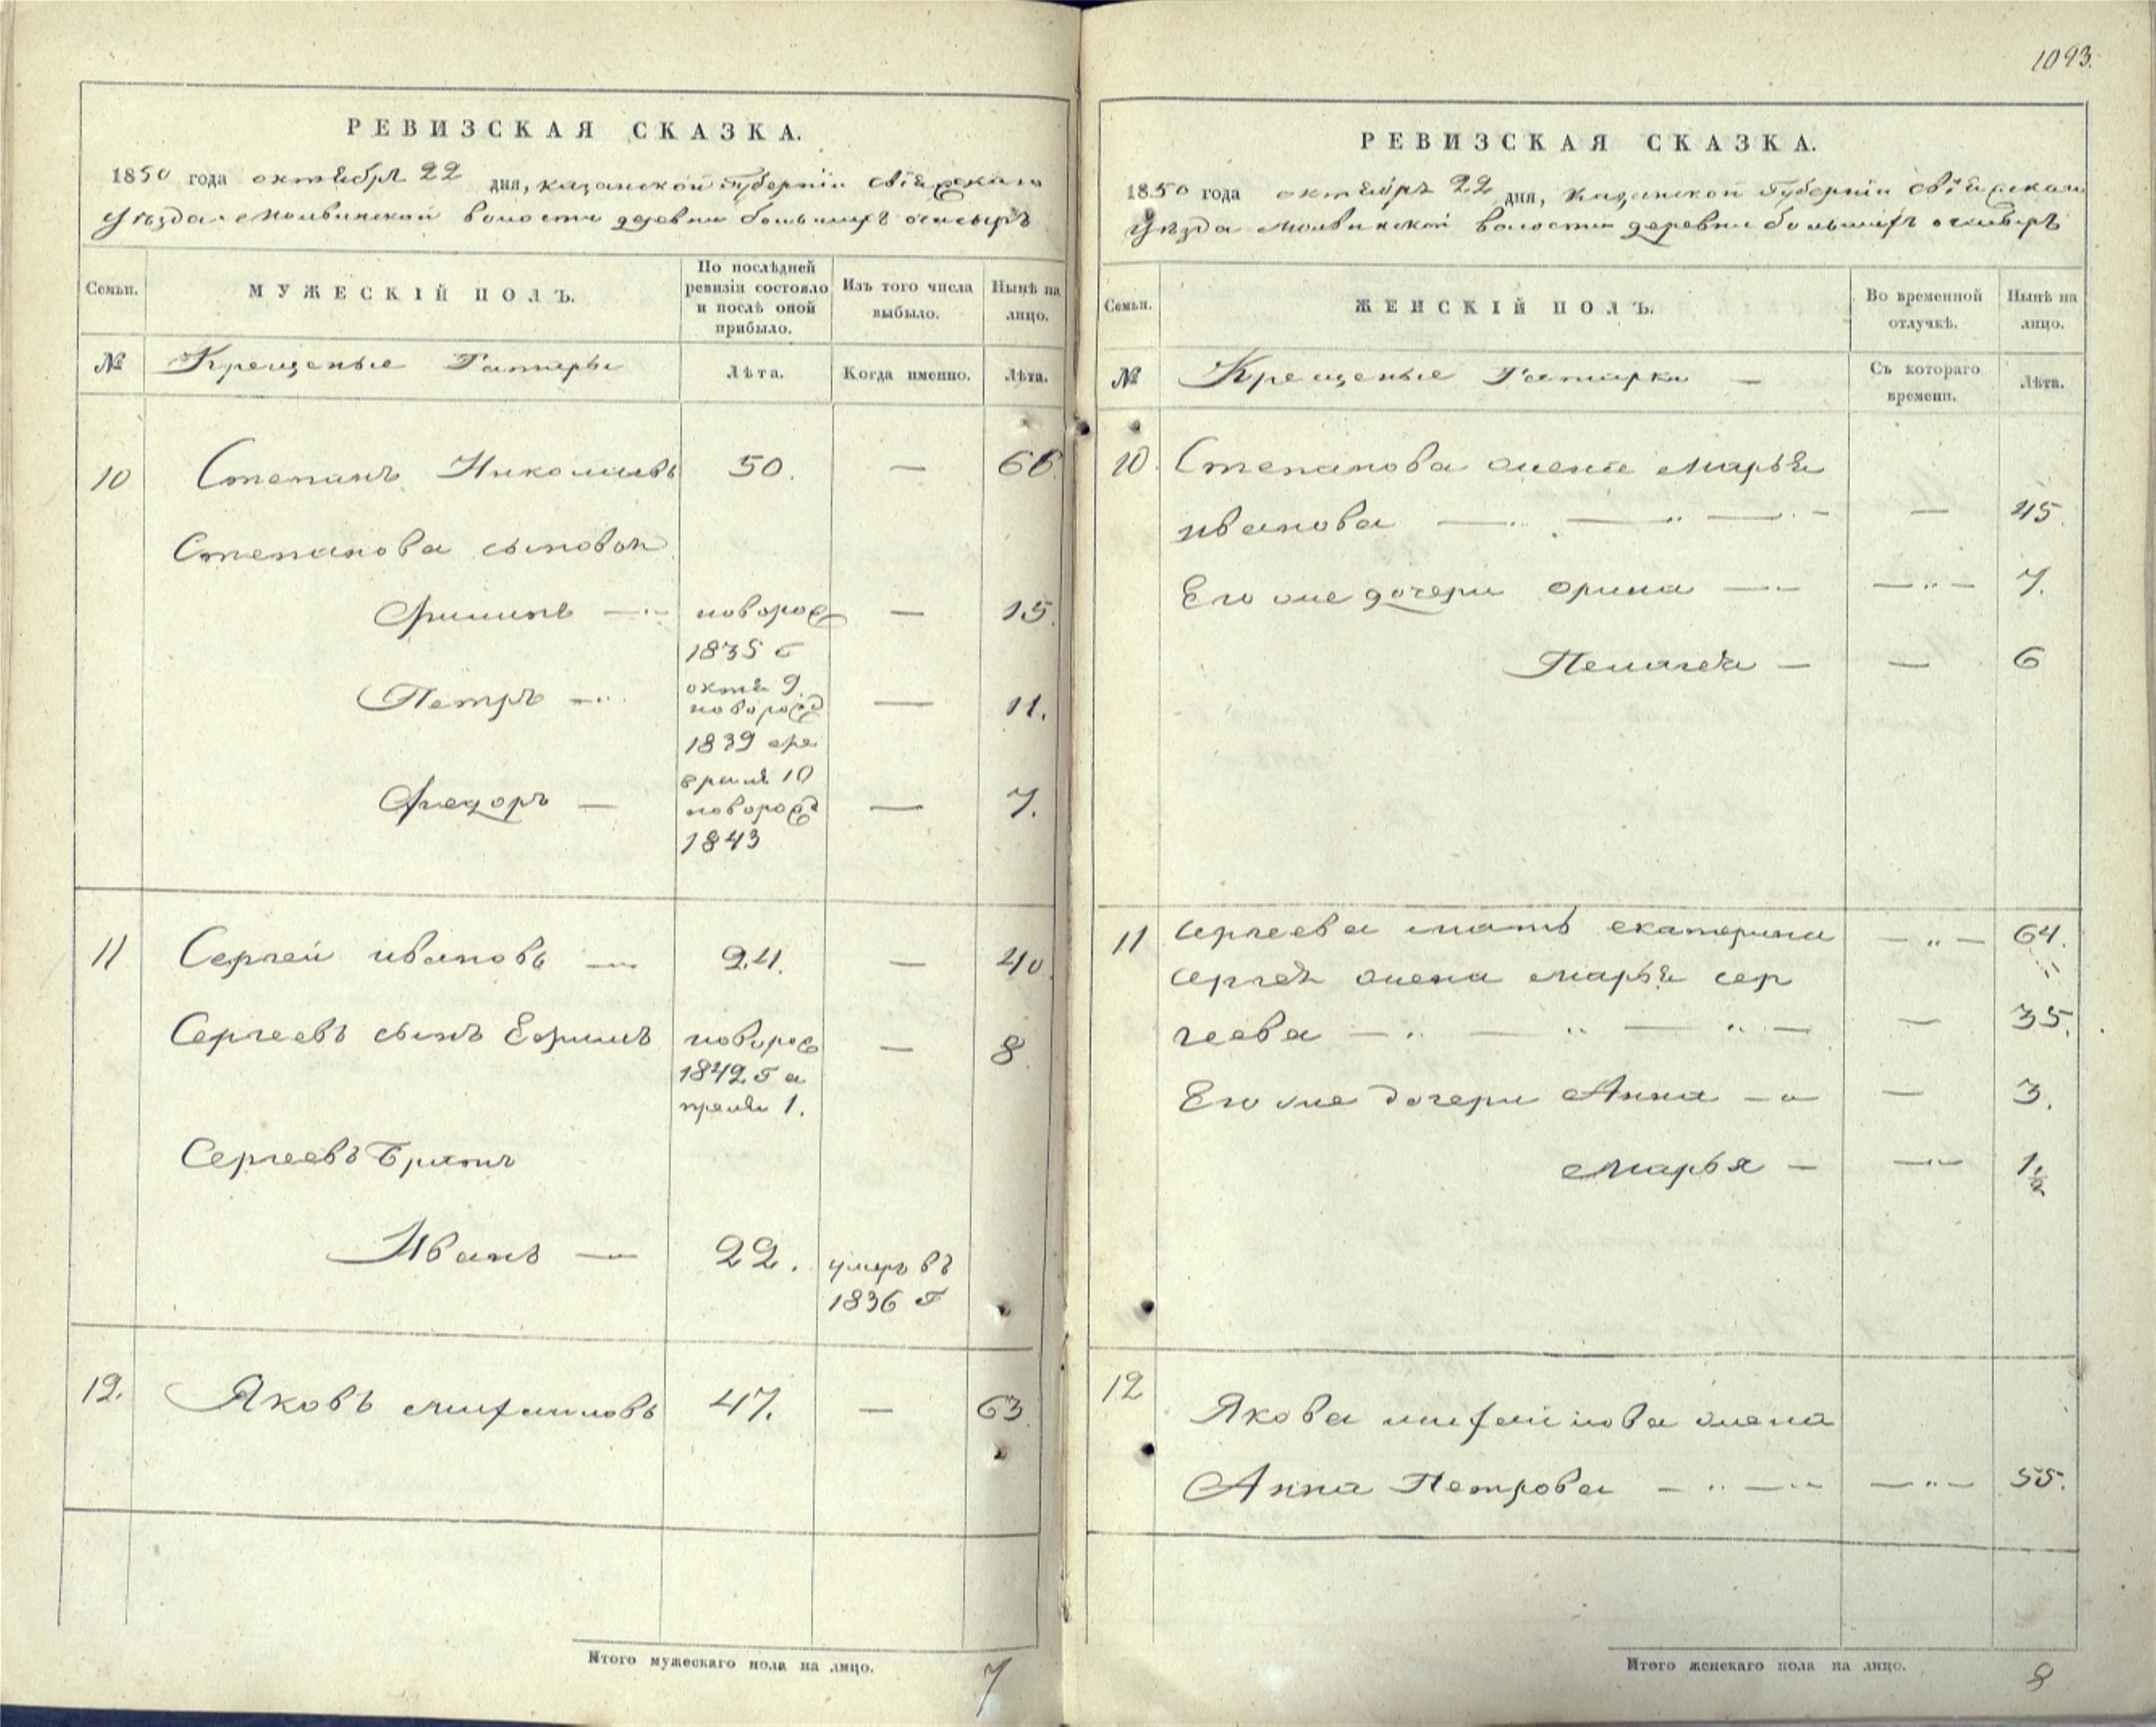 1093.
РЕВИЗСКАЯ СКАЗКА.
1850 года октября 22 дня, казанской Губернiи свiяжскаго
уѣзда Молвинской волости деревни большихъ
Семьи.
МУЖЕСКIЙ ПОЛЪ.
По послѣдней ревизiи состояло и послѣ оной прибыло.
Изъ того числа выбыло.
Нынѣ на лицо.
№
Крещеные Татары
Лѣта.
Когда именно.
Лѣта.
10 Степанъ Николаевъ 50. — 66.
Степанова сыновья
Филипъ — новорож — 15.
1835 г
октя 9.
Петръ — новорожд — 11.
1839 фе
враля 10
Федоръ — новорожд — 7.
1843
11 Сергей ивановъ — 24. — 40.
Сергеевъ сынъ Ефимъ новорож — 8
1842 г а
преля 1.
Сергеевъ Братъ
Иванъ — 22. умеръ въ
1836 г
12. Яковъ михайловъ 47. — 63.
Итого мужескаго пола на лицо. 7
РЕВИЗСКАЯ СКАЗКА.
1850 года октября 22 дня, Казанской Губернiи свiяжскаго
уѣзда Молвинской волости деревни большихъ
Семьи.
ЖЕНСКIЙ ПОЛЪ.
Во временной отлучкѣ.
Нынѣ на лицо.
№
Крещеные Татарки —
Съ котораго времени.
Лѣта.
10. Степанова жена Марья
иванова — — 45.
Его же дочери орина — — 7.
Пелагея — — 6
11 Сергеева мать екатерина — 64.
Сергея жена марья сер
геева — — 35.
Его же дочери Анна — — 3.
Марья — — 1½
12
Якова михайлова жена
Анна Петрова — — 55.
Итого женскаго пола на лицо. 8